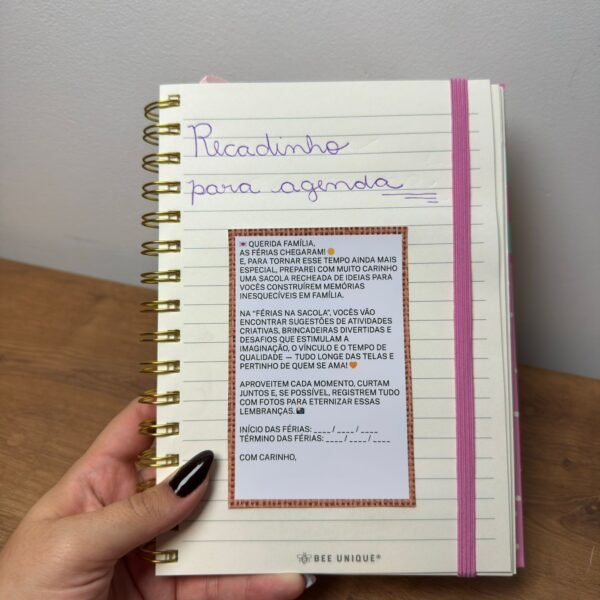 Recadinho
para agenda
💌 QUERIDA FAMÍLIA,
AS FÉRIAS CHEGARAM! 🌞
E, PARA TORNAR ESSE TEMPO AINDA MAIS
ESPECIAL, PREPAREI COM MUITO CARINHO
UMA SACOLA RECHEADA DE IDEIAS PARA
VOCÊS CONSTRUÍREM MEMÓRIAS
INESQUECÍVEIS EM FAMÍLIA.
NA "FÉRIAS NA SACOLA", VOCÊS VÃO
ENCONTRAR SUGESTÕES DE ATIVIDADES
CRIATIVAS, BRINCADEIRAS DIVERTIDAS E
DESAFIOS QUE ESTIMULAM A
IMAGINAÇÃO, O VÍNCULO E O TEMPO DE
QUALIDADE — TUDO LONGE DAS TELAS E
PERTINHO DE QUEM SE AMA! 🧡
APROVEITEM CADA MOMENTO, CURTAM
JUNTOS E, SE POSSÍVEL, REGISTREM TUDO
COM FOTOS PARA ETERNIZAR ESSAS
LEMBRANÇAS. 📸
INÍCIO DAS FÉRIAS: ____ / ____ / ____
TÉRMINO DAS FÉRIAS: ____ / ____ / ____
COM CARINHO,
BEE UNIQUE®